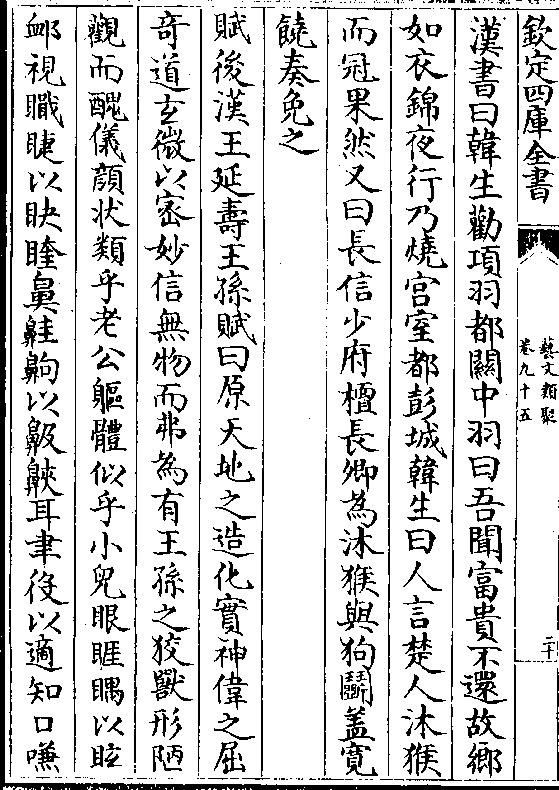 欽定四庫全書
藝文類聚
卷九十五
二十
漢書曰韓生勸項羽都關中羽曰吾聞富貴不還故鄉
如衣錦夜行乃燒宫室都彭城韓生曰人言楚人沐猴
而冠果然又曰長信少府檀長卿為沐猴與狗鬬盖寛
饒奏免之
賦後漢王延壽王孫賦曰原天地之造化實神偉之屈
竒道𤣥微以宻妙信無物而弗為有王孫之狡獸形陋
觀而醜儀顔状類乎老公軀體似乎小兒眼睚䁥以眩
䘏視職睫以䀗睳鼻䶎齁以䶋䶝耳聿役以適知口嗛